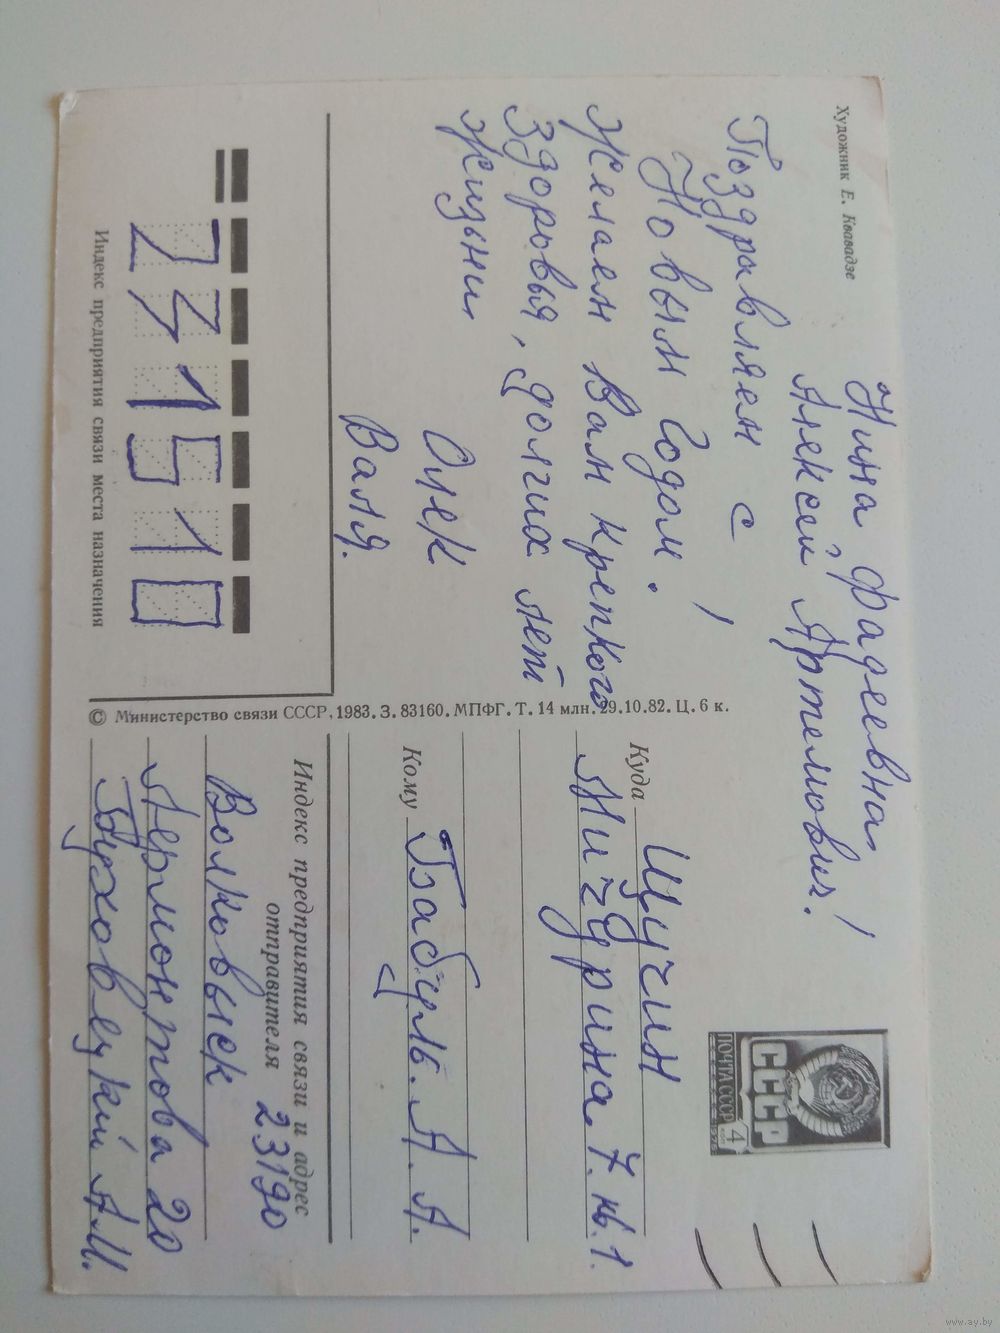 Художник Е. Квавадзе
Нина Фадеевна,
Алексей Артемович!
Поздравляем с
Новым годом!
Желаем Вам крепкого
здоровья, долгих лет
жизни.
Олек
Валя.
Индекс предприятия связи места назначения
© Министерство связи СССР, 1983. З. 83160. МПФГ. Т. 14 млн. 29.10.82. Ц. 6 к.
ПОЧТА СССР
4
СССР
Куда Щучин
Мичурина. 7. кв. 1.
Кому Бабуль. А. А.
Индекс предприятия связи и адрес
отправителя 23190
Волковыск
Лермонтова 20
А.М.
www.ay.by